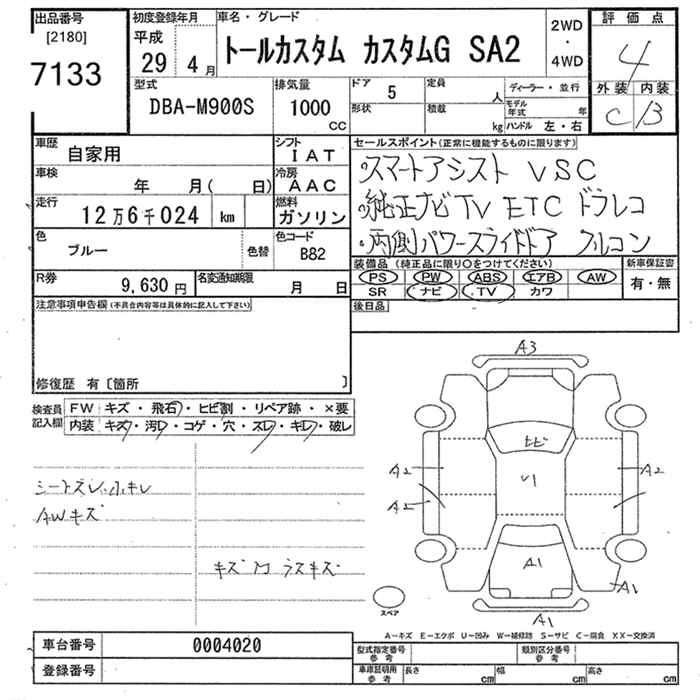 出品番号
[2180]
7133
初度登録年月
平成
29年 4月
車名・グレード
トールカスタム カスタムG SA2
2WD
・
4WD
評価点
4
外装 内装
C B
型式
DBA-M900S
排気量
1000
CC
ドア
5
形状
定員
人
積載
kg
ディーラー・並行
モデル年式
年
ハンドル 左・右
車歴
自家用
シフト
IAT
車検
年 月( 日)
冷房
AAC
走行
12万6千024 km
燃料
ガソリン
色
ブルー
色替
色コード
B82
R券
9,630 円
名変通知期限
月 日
セールスポイント(正常に機能するものに限ります)
・スマートアシスト VSC
・純正ナビTV ETC ドラレコ
・両側パワースライドドア フルコン
装備品(純正品に限り○をつけてください)
新車保証書
PS PW ABS エアB AW
有・無
SR ナビ TV カワ
後日品
注意事項申告欄(不具合内容等は具体的に記入して下さい)
修復歴 有〔箇所 〕
検査員記入欄
FW キズ・飛石・ヒビ割・リペア跡・×要
内装 キズ・汚レ・コゲ・穴・スレ・キレ・破レ
シートズレ.小キレ
AWキズ
キズ M ラスキズ
A3
ヒビ
A2
A2
U1
A2
A1
A1
A1
スペア
A-キズ E-エクボ U-凹み W-補修跡 S-サビ C-腐食 XX-交換済
車台番号
0004020
登録番号
型式指定番号
参考
類別区分番号
参考
車庫証明用
参考
長さ
cm
幅
cm
高さ
cm